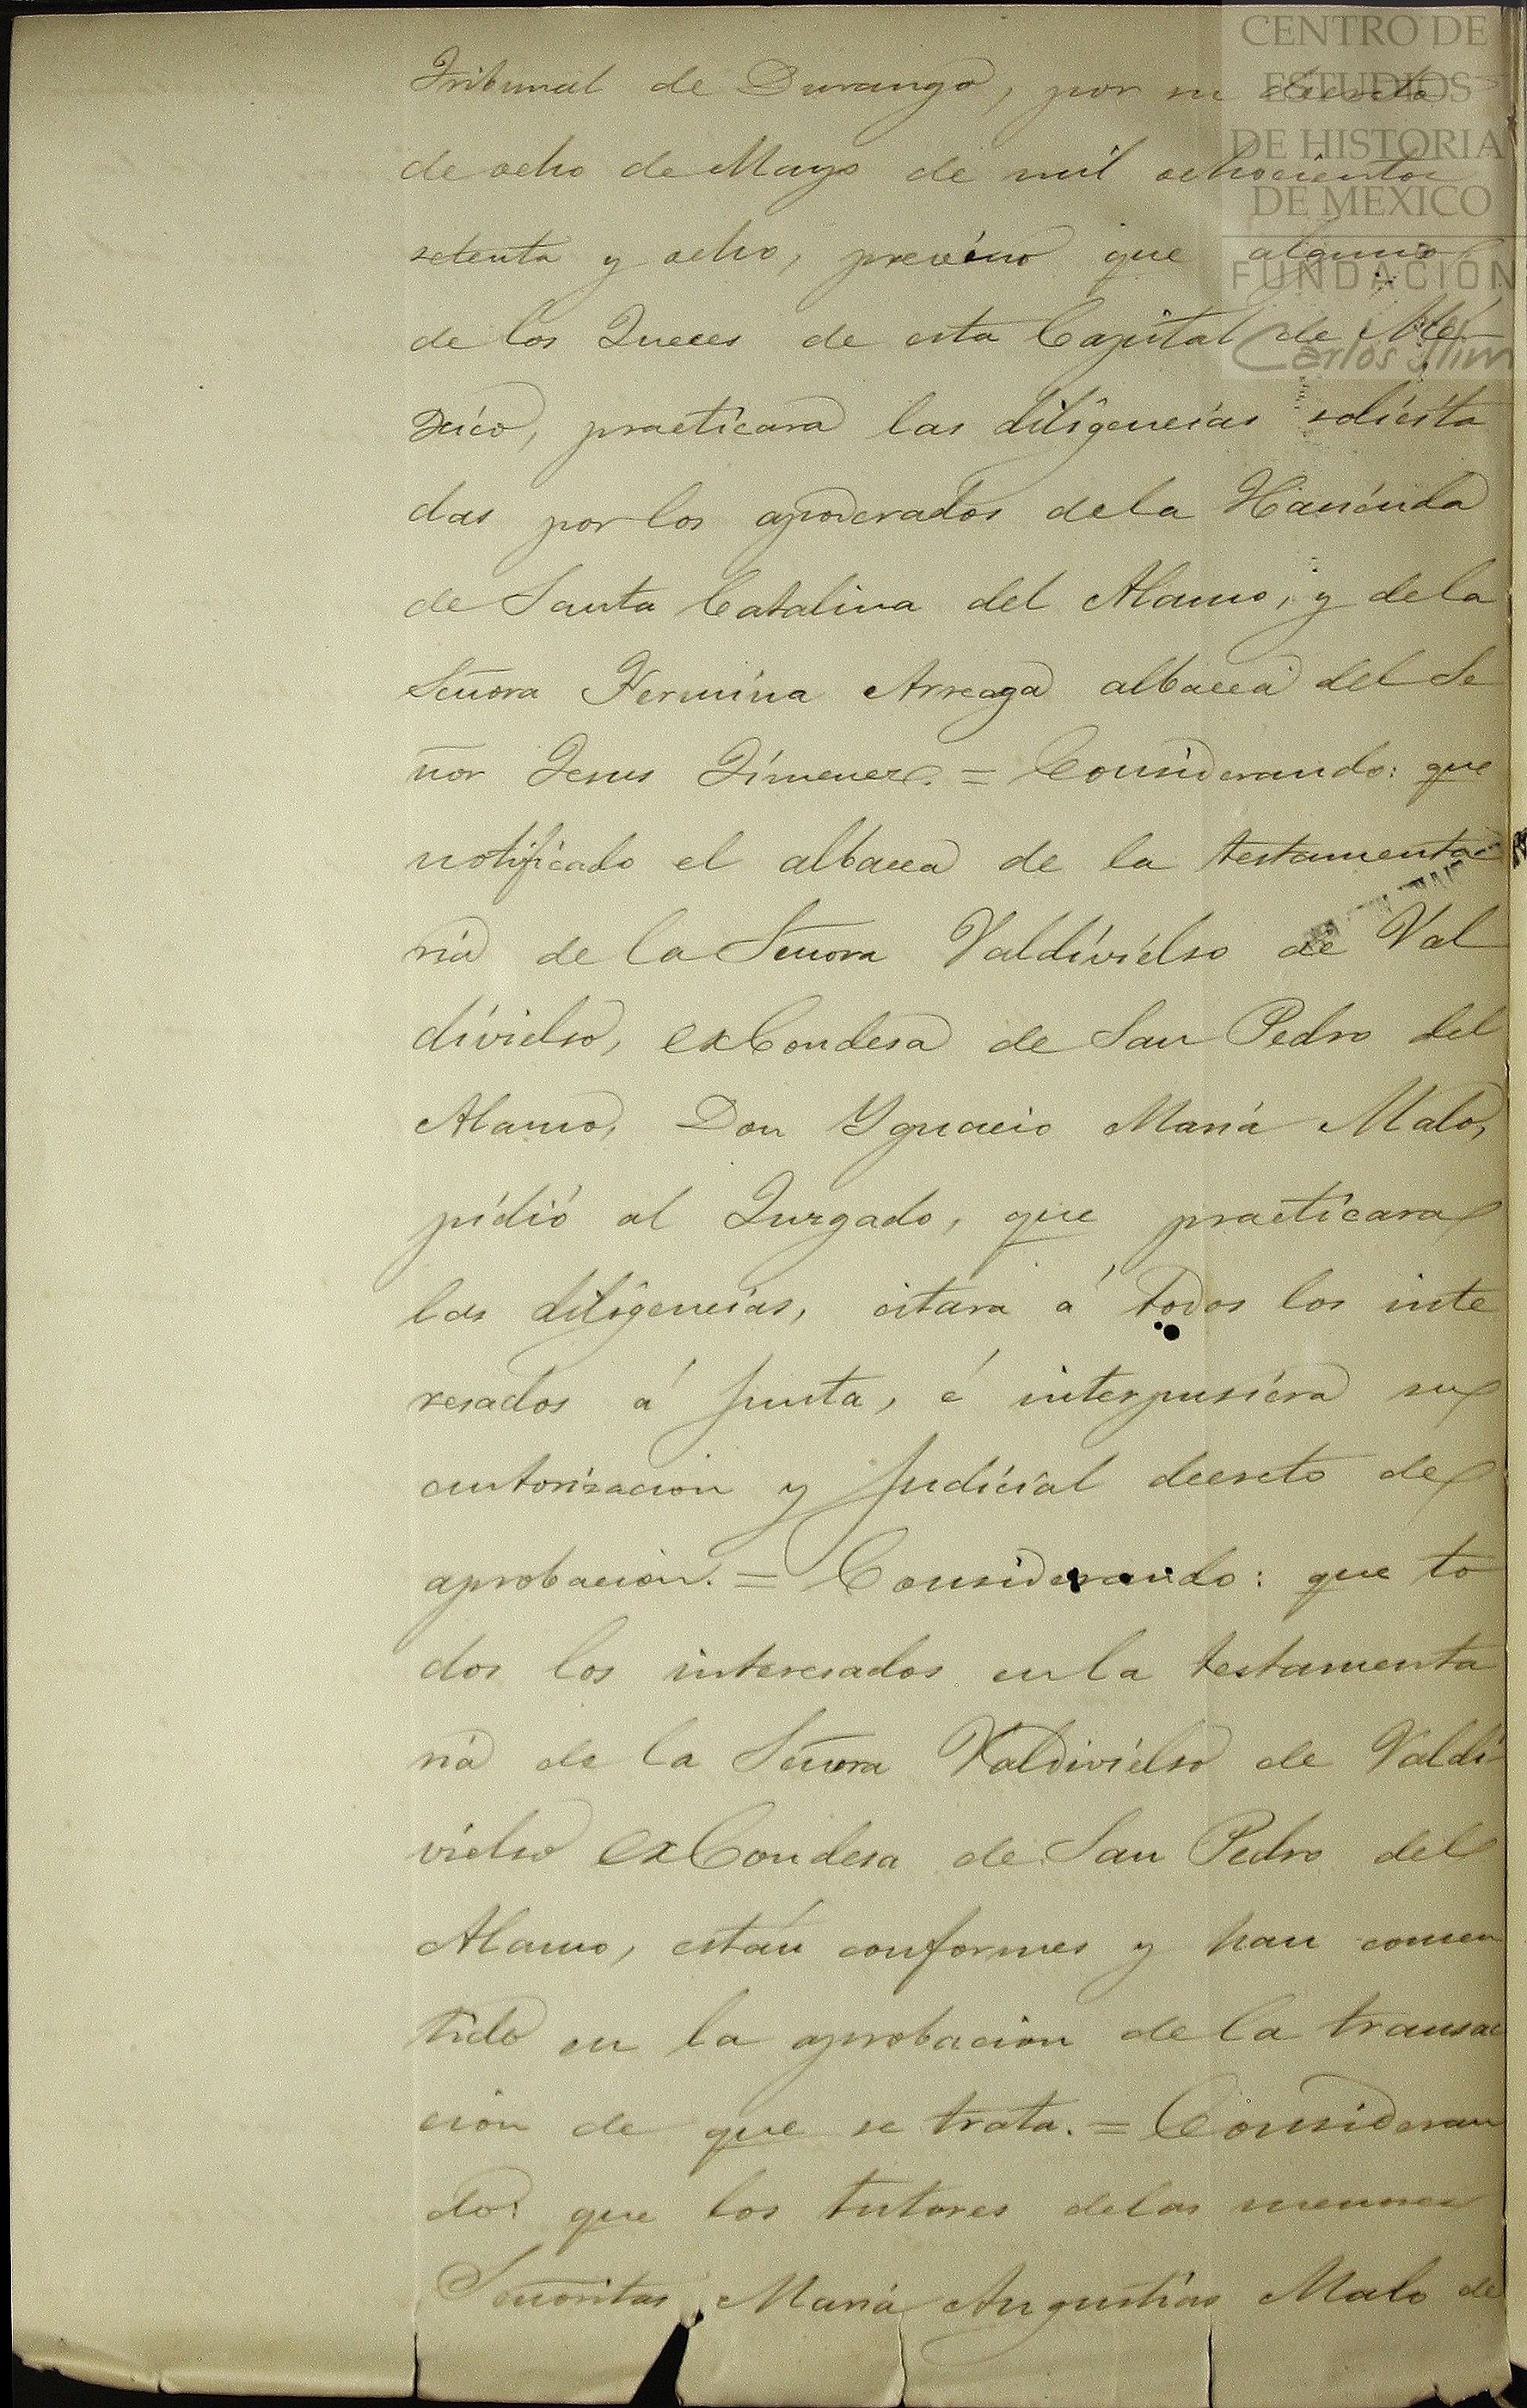 CENTRO DE
ESTUDIOS
DE HISTORIA
DE MEXICO
FUNDACIÓN
Carlos Slim
Tribunal de Durango, por su decreto
de ocho de Mayo de mil ochocientos
setenta y ocho, previno que alguno
de los Jueces de esta Capital de Mé
xico, practicara las diligencias solicita
das por los apoderados de la Hacienda
de Santa Catalina del Alamo, y de la
Señora Fermina Arreaga albacea del Se
ñor Jesus Jimenez. = Considerando: que
notificado el albacea de la testamenta
ria de la Señora Valdivielso de Val
divielso, exCondesa de San Pedro del
Alamo, Don Ygnacio Maria Malo,
pidió al Juzgado, que practicara
las diligencias, citara á todos los inte
resados á junta, é interpusiera su
autorizacion y judicial decreto de
aprobacion. = Considerando: que to
dos los interesados en la testamenta
ria de la Señora Valdivielso de Valdi
vielso exCondesa de San Pedro del
Alamo, están conformes y han consen
tido en la aprobacion de la transac
cion de que se trata. = Consideran
do: que los tutores de las menores
Señoritas Maria Angustias Malo de